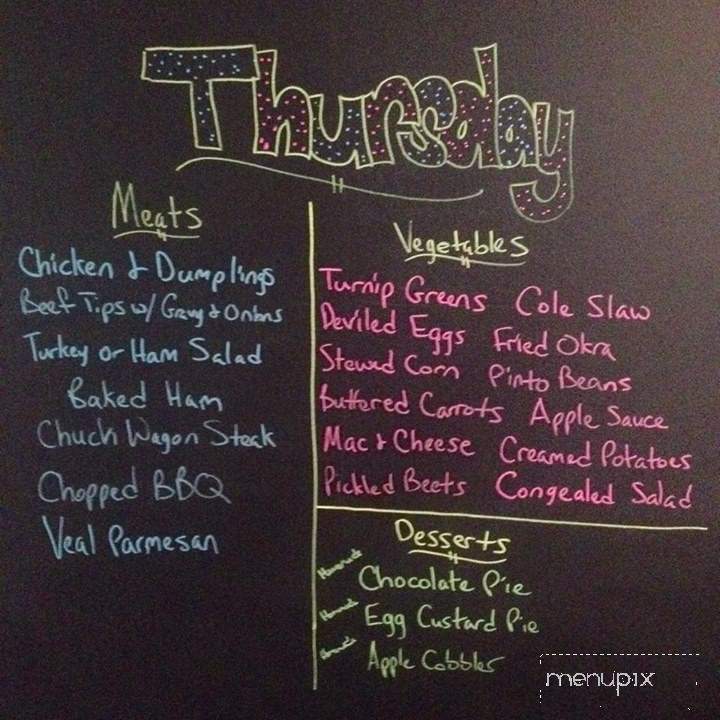 Thursday
Meats
Chicken & Dumplings
Beef Tips w/ Gravy & Onions
Turkey or Ham Salad
Baked Ham
Chuck Wagon Steak
Chopped BBQ
Veal Parmesan
Vegetables
Turnip Greens Cole Slaw
Deviled Eggs Fried Okra
Stewed Corn Pinto Beans
Buttered Carrots Apple Sauce
Mac & Cheese Creamed Potatoes
Pickled Beets Congealed Salad
Desserts
Homemade Chocolate Pie
Homemade Egg Custard Pie
Apple Cobbler
menupix